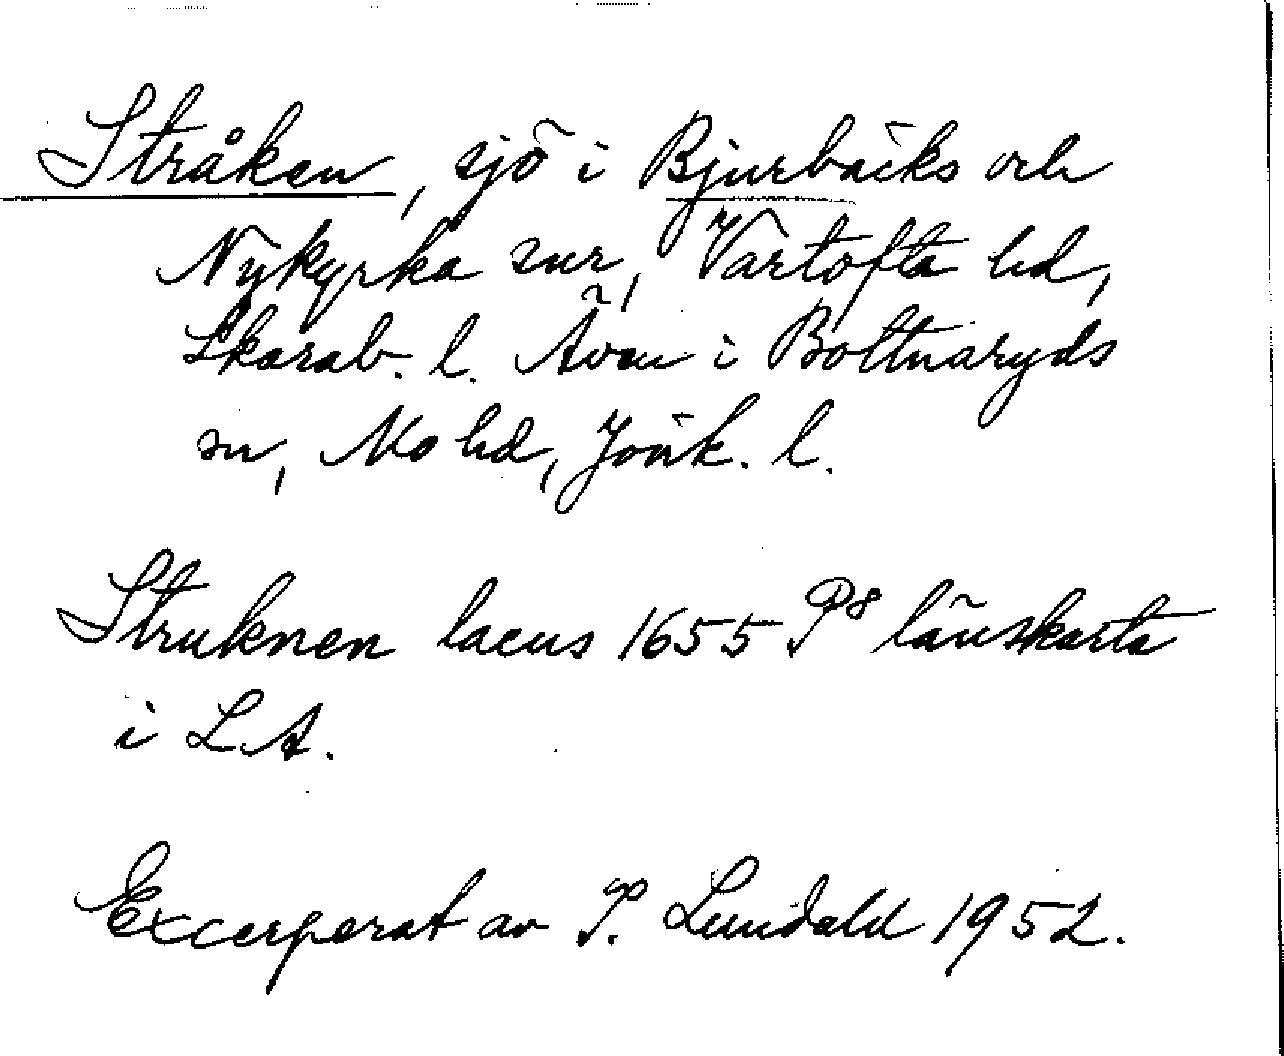 Stråken, sjö i Bjurbäcks och
Nykyrka snr, Vartofta hd,
Skarab. l. Även i Bottnaryds
sn, Mo hd, Jönk. l.
Struknen lacus 1655 P8 länskarta
i LA.
Excerperat av P. Lundahl 1952.